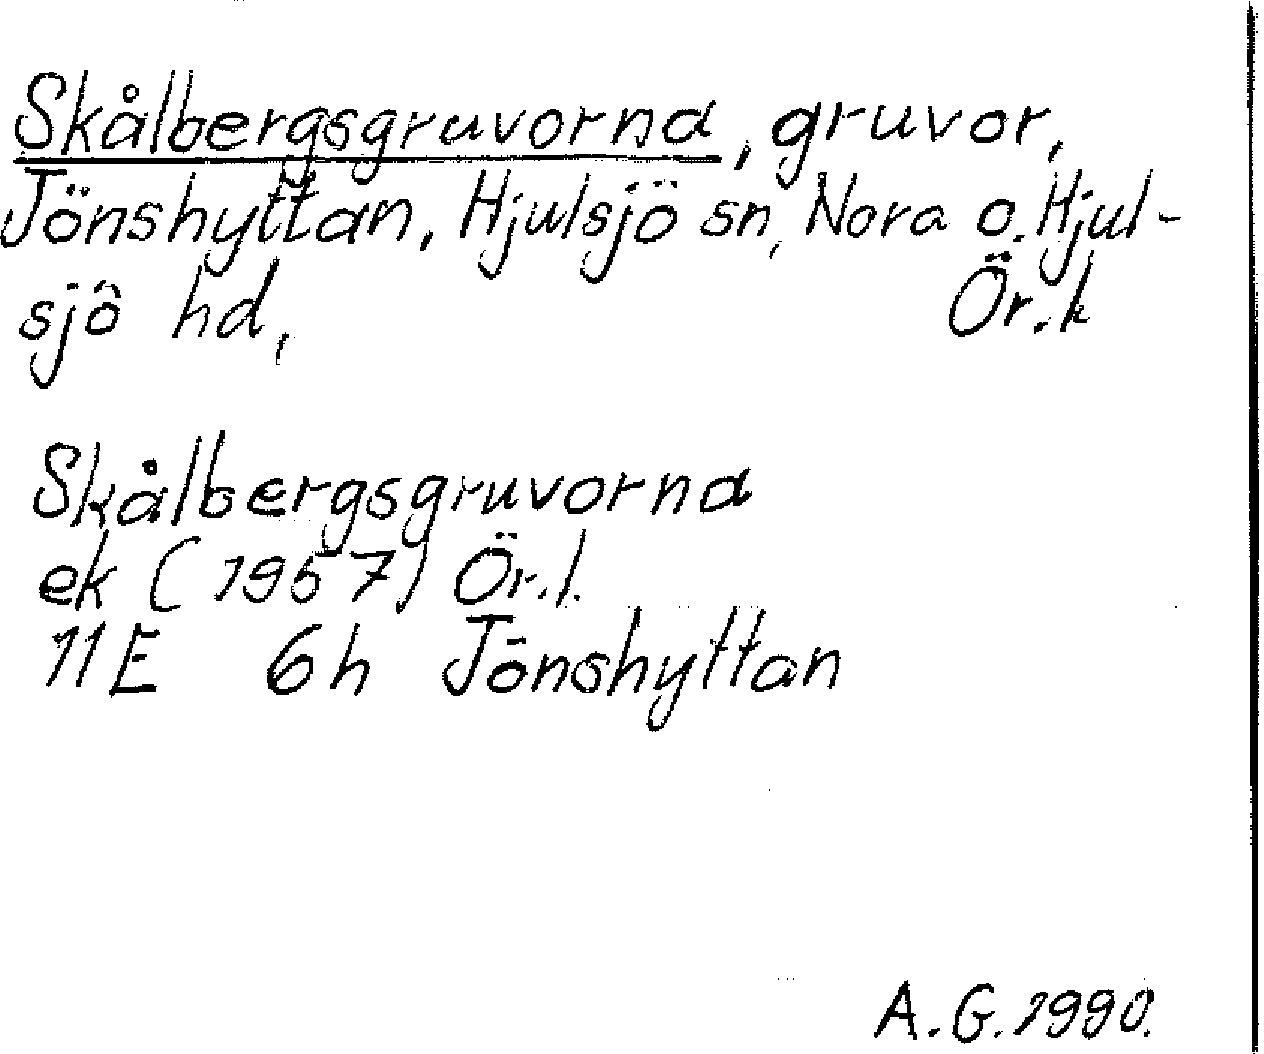 Skålbergsgruvorna, gruvor,
Jönshyttan, Hjulsjö sn, Nora o. Hjul-
sjö hd, Ör. k
Skålbergsgruvorna
ek (1957) Ör. l.
11E 6h Jönshyttan
A.G. 1990.